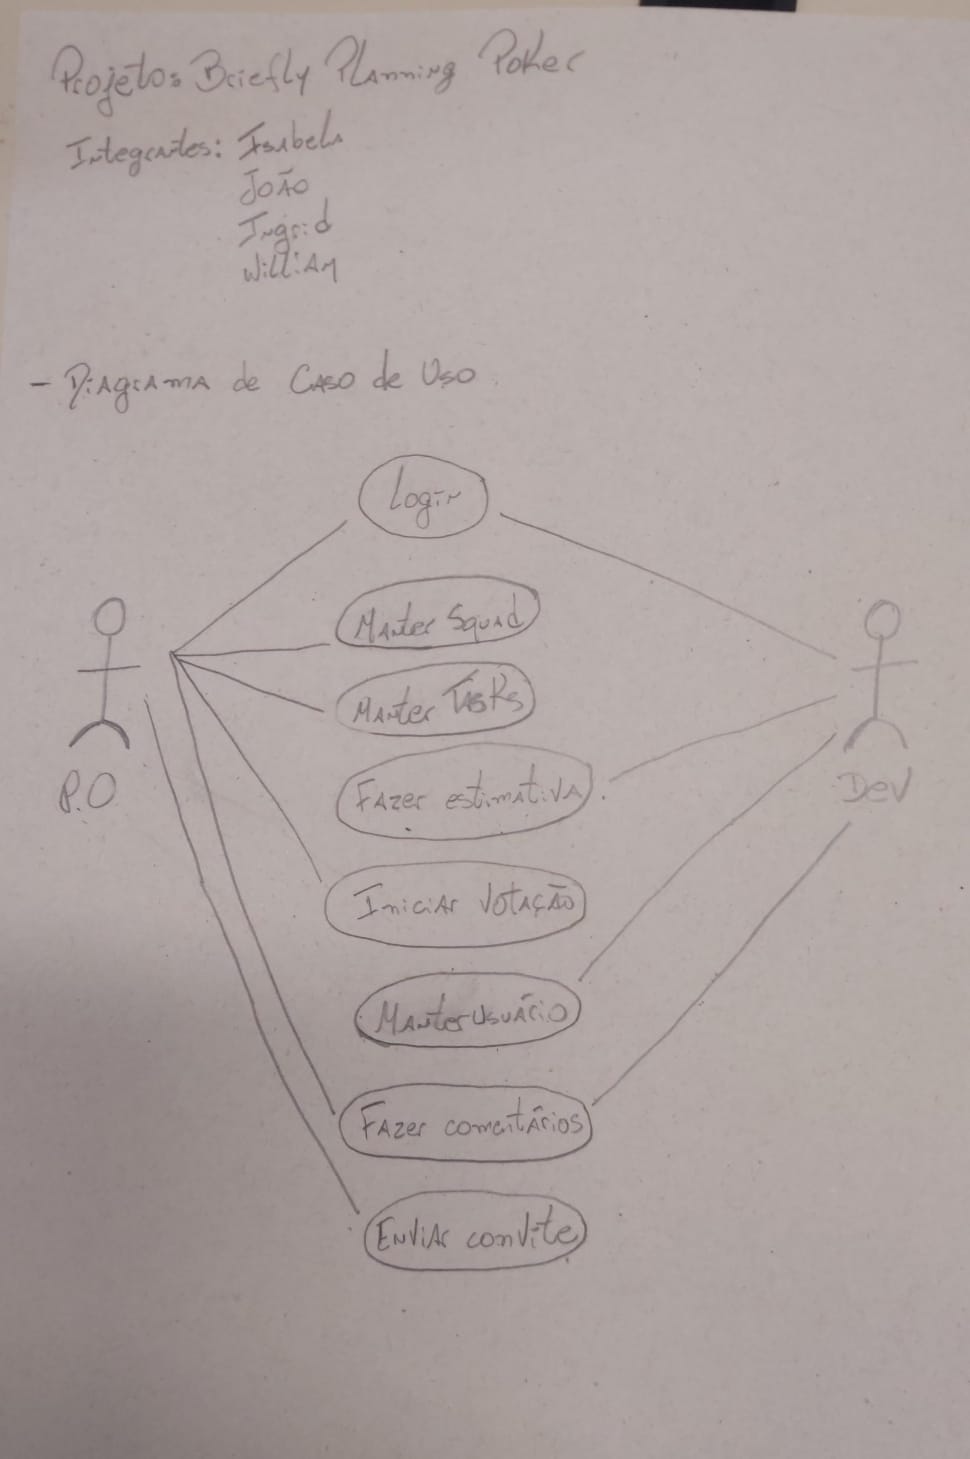 Projetos Briefly Planning Poker
Integrantes: Isabela
João
Ingrid
William
- Diagrama de Caso de Uso
Login
Manter Squad
Manter Tasks
Fazer estimativa
P.O
Dev
Iniciar Votação
Manter usuário
Fazer comentários
Enviar convite